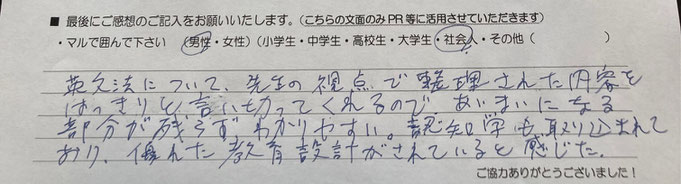 ■ 最後にご感想のご記入をお願いいたします。（こちらの文面のみPR等に活用させていただきます）
・マルで囲んで下さい （男性・女性）（小学生・中学生・高校生・大学生・社会人・その他（ ）
英文法について、先生の視点で整理された内容を
はっきりと言い切ってくれるので あいまいになる
部分が残らずわかりやすい。認知学も取り込まれて
おり、優れた教育設計がされていると感じた。
ご協力ありがとうございました！